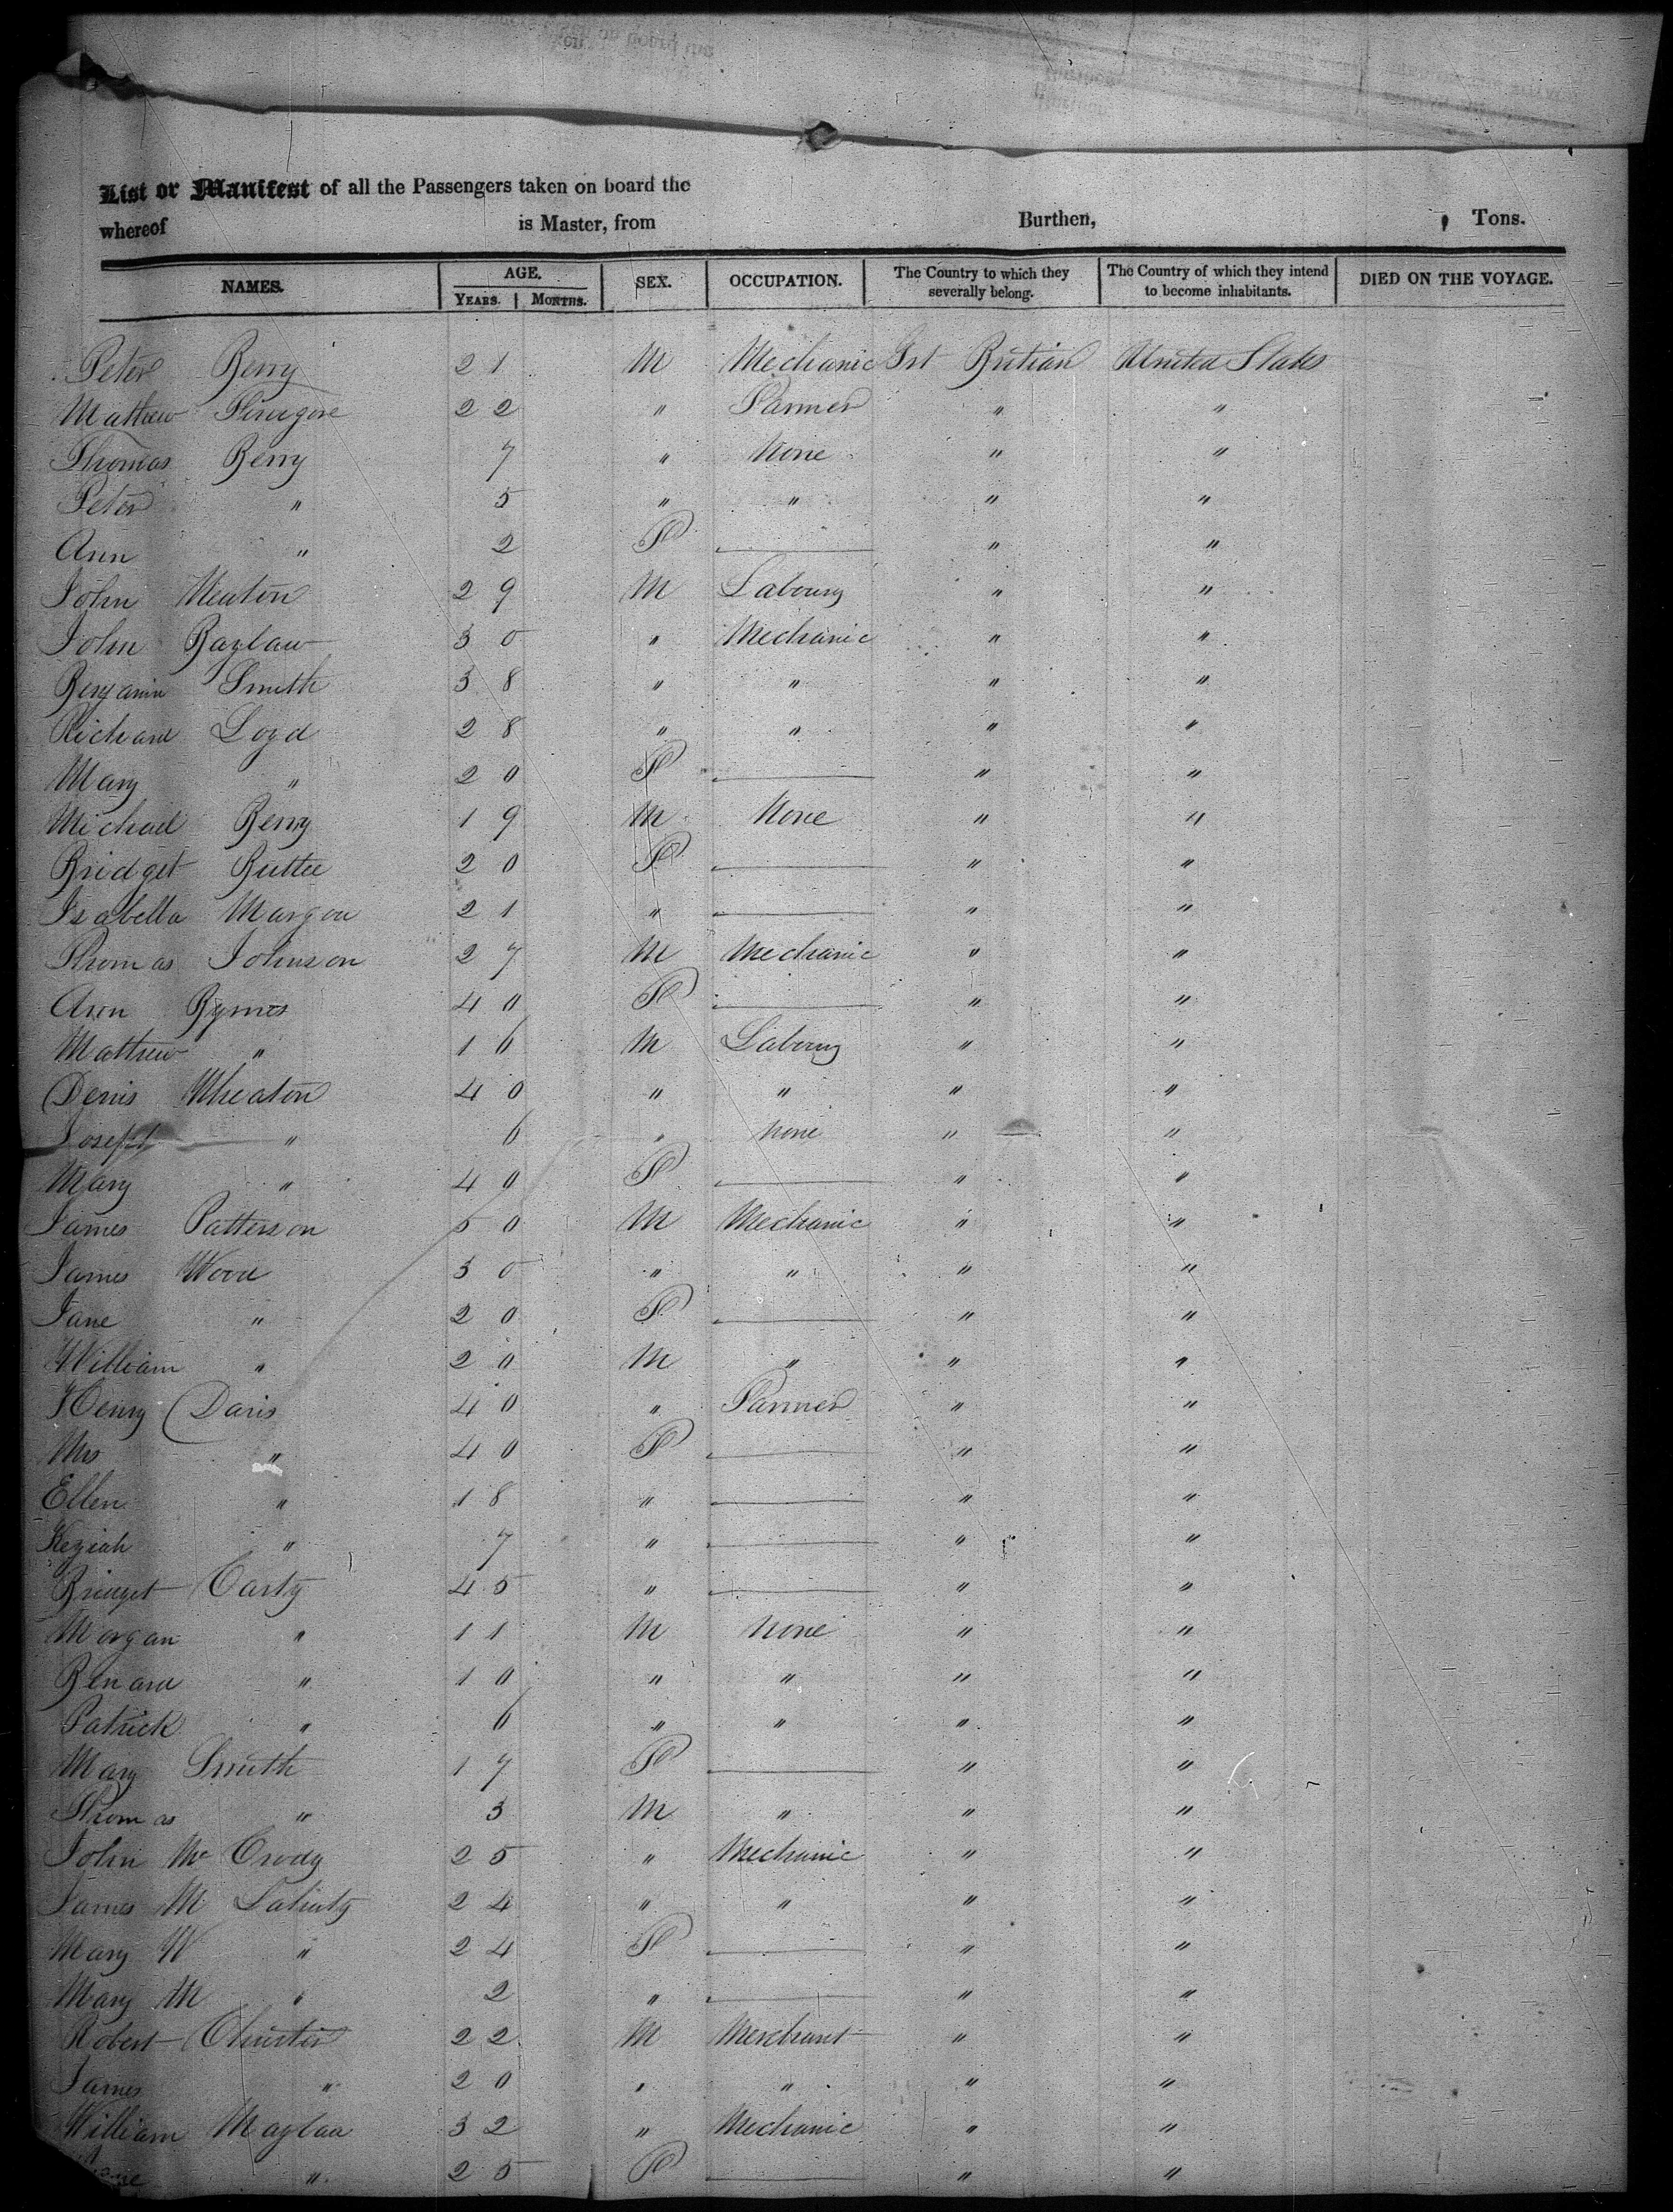 List or Manifest of all the Passengers taken on board the
whereof is Master, from Burthen, Tons.
NAMES. AGE. SEX. OCCUPATION. The Country to which they severally belong. The Country of which they intend to become inhabitants. DIED ON THE VOYAGE.
YEARS. MONTHS.
Peter Berry 21 M Mechanic Grt Britian United States
Mathew 22 " Farmer " "
Thomas Berry 7 " None " "
Peter " 5 " " " "
Ann " 2 F — " "
John 29 M Labourg " "
John Baglaw 30 " Mechanic " "
Benjamin Smith 38 " " " "
Richard Loyd 28 " " " "
Mary " 20 F — " "
Michael Berry 19 M None " "
Bridget Buttee 20 F — " "
Isabella Margou 21 " — " "
Thomas Johnson 27 M Mechanic " "
Ann Byrnes 40 F — " "
Mathew " 16 M Labourg " "
Denis Wheaton 40 " " " "
Joseph " 6 " None " "
Mary " 40 F — " "
James Patterson 50 M Mechanic " "
James Wood 30 " " " "
Jane " 20 F — " "
William " 20 M " " "
Henry Davis 40 " Farmer " "
Mrs " 40 F — " "
Ellen " 18 " — " "
Keziah " 7 " — " "
Bridget Carty 45 " — " "
Morgan " 11 M None " "
Benard " 10 " " " "
Patrick " 6 " " " "
Mary Smith 17 F — " "
Thomas " 3 M " " "
John Mc Crody 25 " Mechanic " "
James M 24 " " " "
Mary W " 24 F — " "
Mary M " 2 " — " "
Robert 22 M Merchant " "
James " 20 " " " "
William Maglaa 32 " Mechanic " "
" 25 F — " "